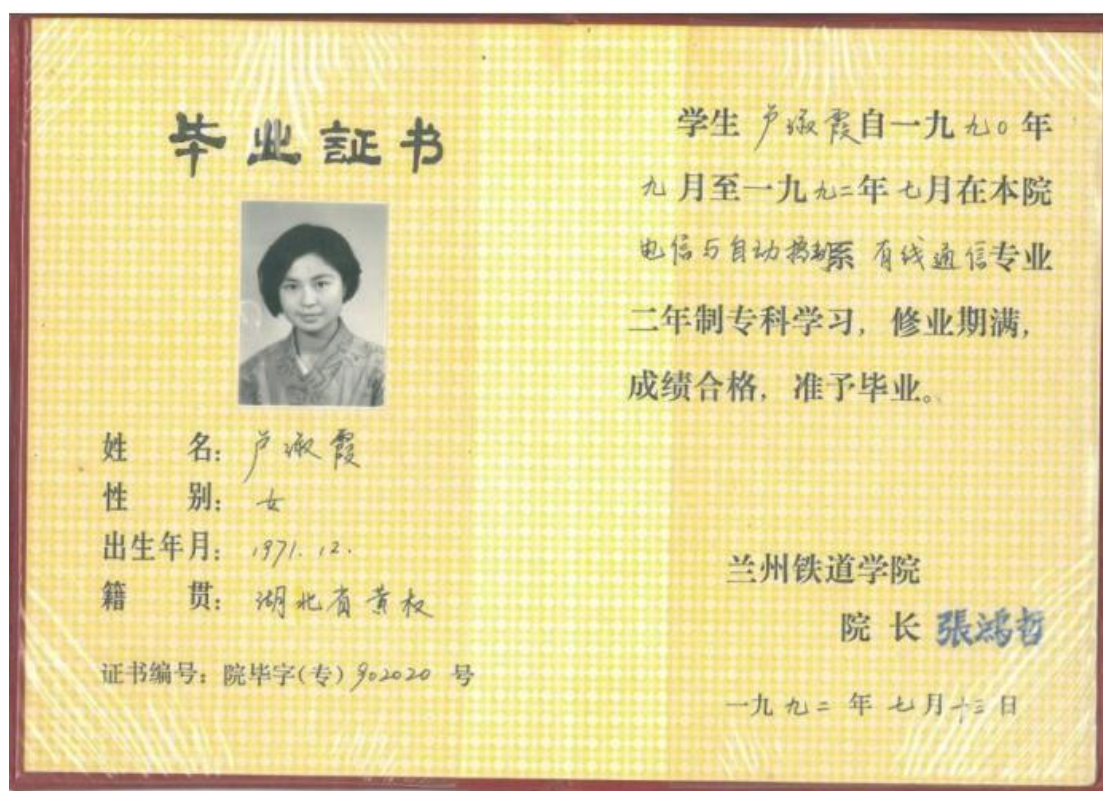 毕业証书
姓 名：卢淑霞
性 别：女
出生年月：1971.12.
籍 贯：湖北省黄
证书编号：院毕字(专)902020 号
学生 卢淑霞自一九九〇年
九月至一九九二年七月在本院
电信与自动控制系 有线通信专业
二年制专科学习，修业期满，
成绩合格，准予毕业。
兰州铁道学院
院 长 張鸿哲
一九九二年七月十三日